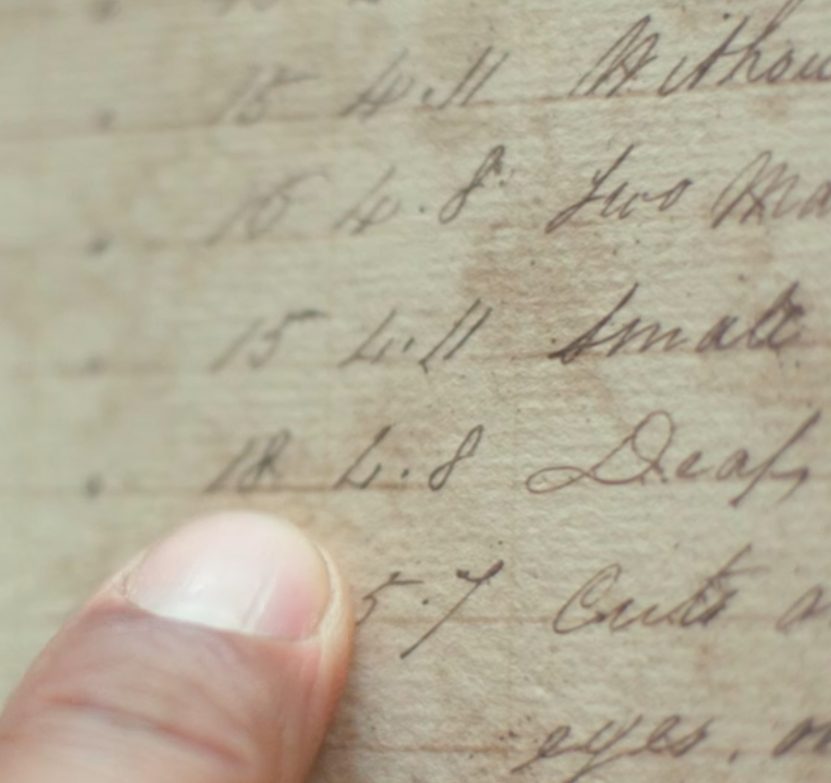 15 4.11 Withou
16 4.8 Two Ma
15 4.11 Small
18 4.8 Deaf,
5.7 Cuts o
eyes, on